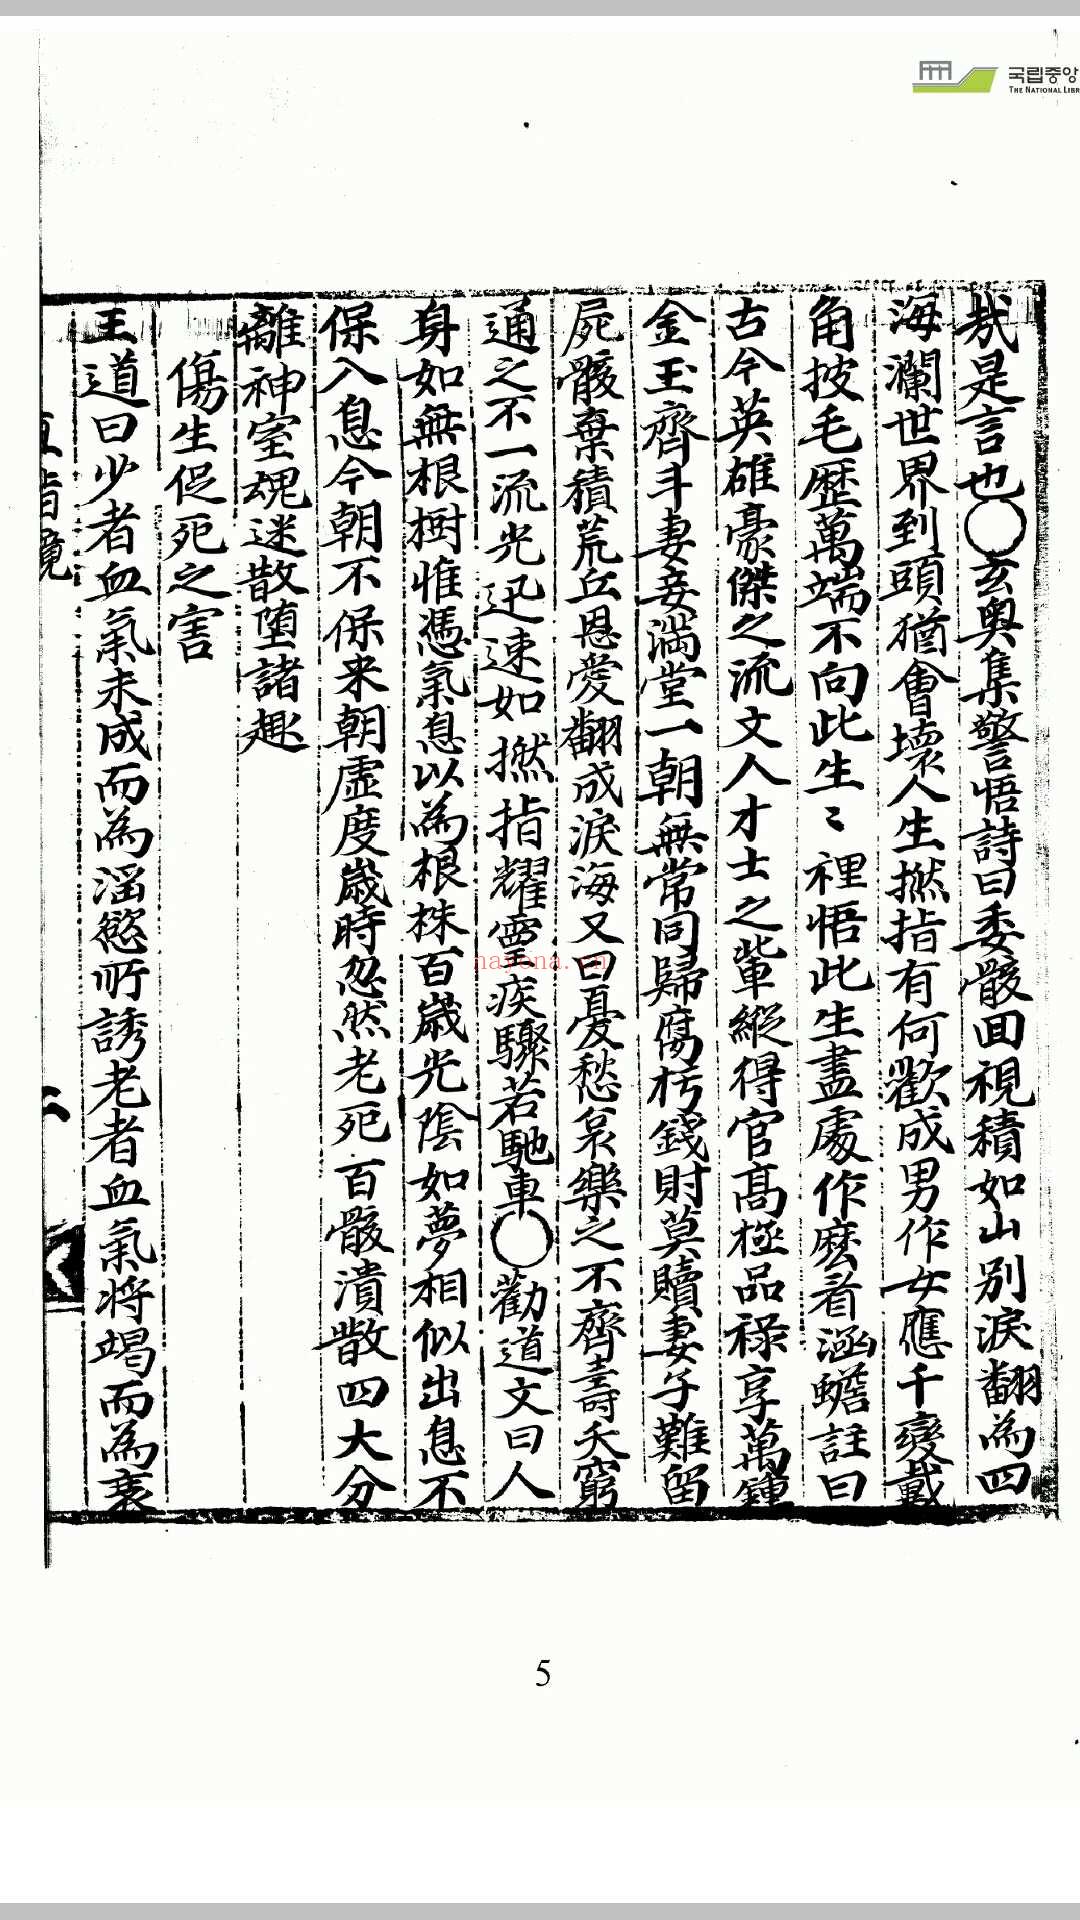 국립중앙
THE NATIONAL LIBR
哉是言也○玄奧集警悟詩曰委骸回視積如山別淚翻為四
海瀾世界到頭猶會壞人生撚指有何歡成男作女應千變戴
角披毛歷萬端不向此生〻裡悟此生盡處作麼看涵蟾註曰
古今英雄豪傑之流文人才士之輩縱得官高極品祿享萬鍾
金玉齊斗妻妾滿堂一朝無常同歸腐朽錢財莫贖妻子難留
屍骸棄積荒丘恩愛翻成淚海又曰憂愁哀樂之不齊壽夭窮
通之不一流光迅速如撚指耀靈疾驟若馳車○勸道文曰人
身如無根樹惟憑氣息以為根株百歲光陰如夢相似出息不
保入息今朝不保來朝虛度歲時忽然老死百骸潰散四大分
離神室魂迷散墮諸趣
傷生促死之害
王道曰少者血氣未成而為滛慾所誘老者血氣將竭而為衰
直指鏡
二
nayona.cn
5